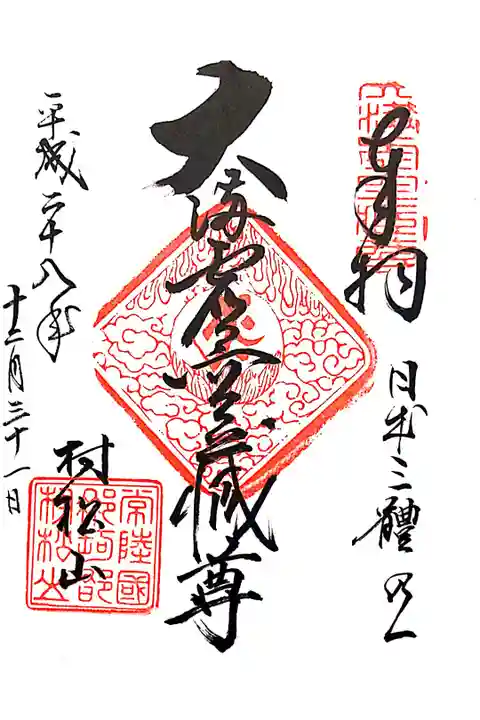 奉拝
日本三體乃一
大満虚空蔵尊
平成二十八年
十二月三十一日
村松山
常陸國
那珂郡
村松山